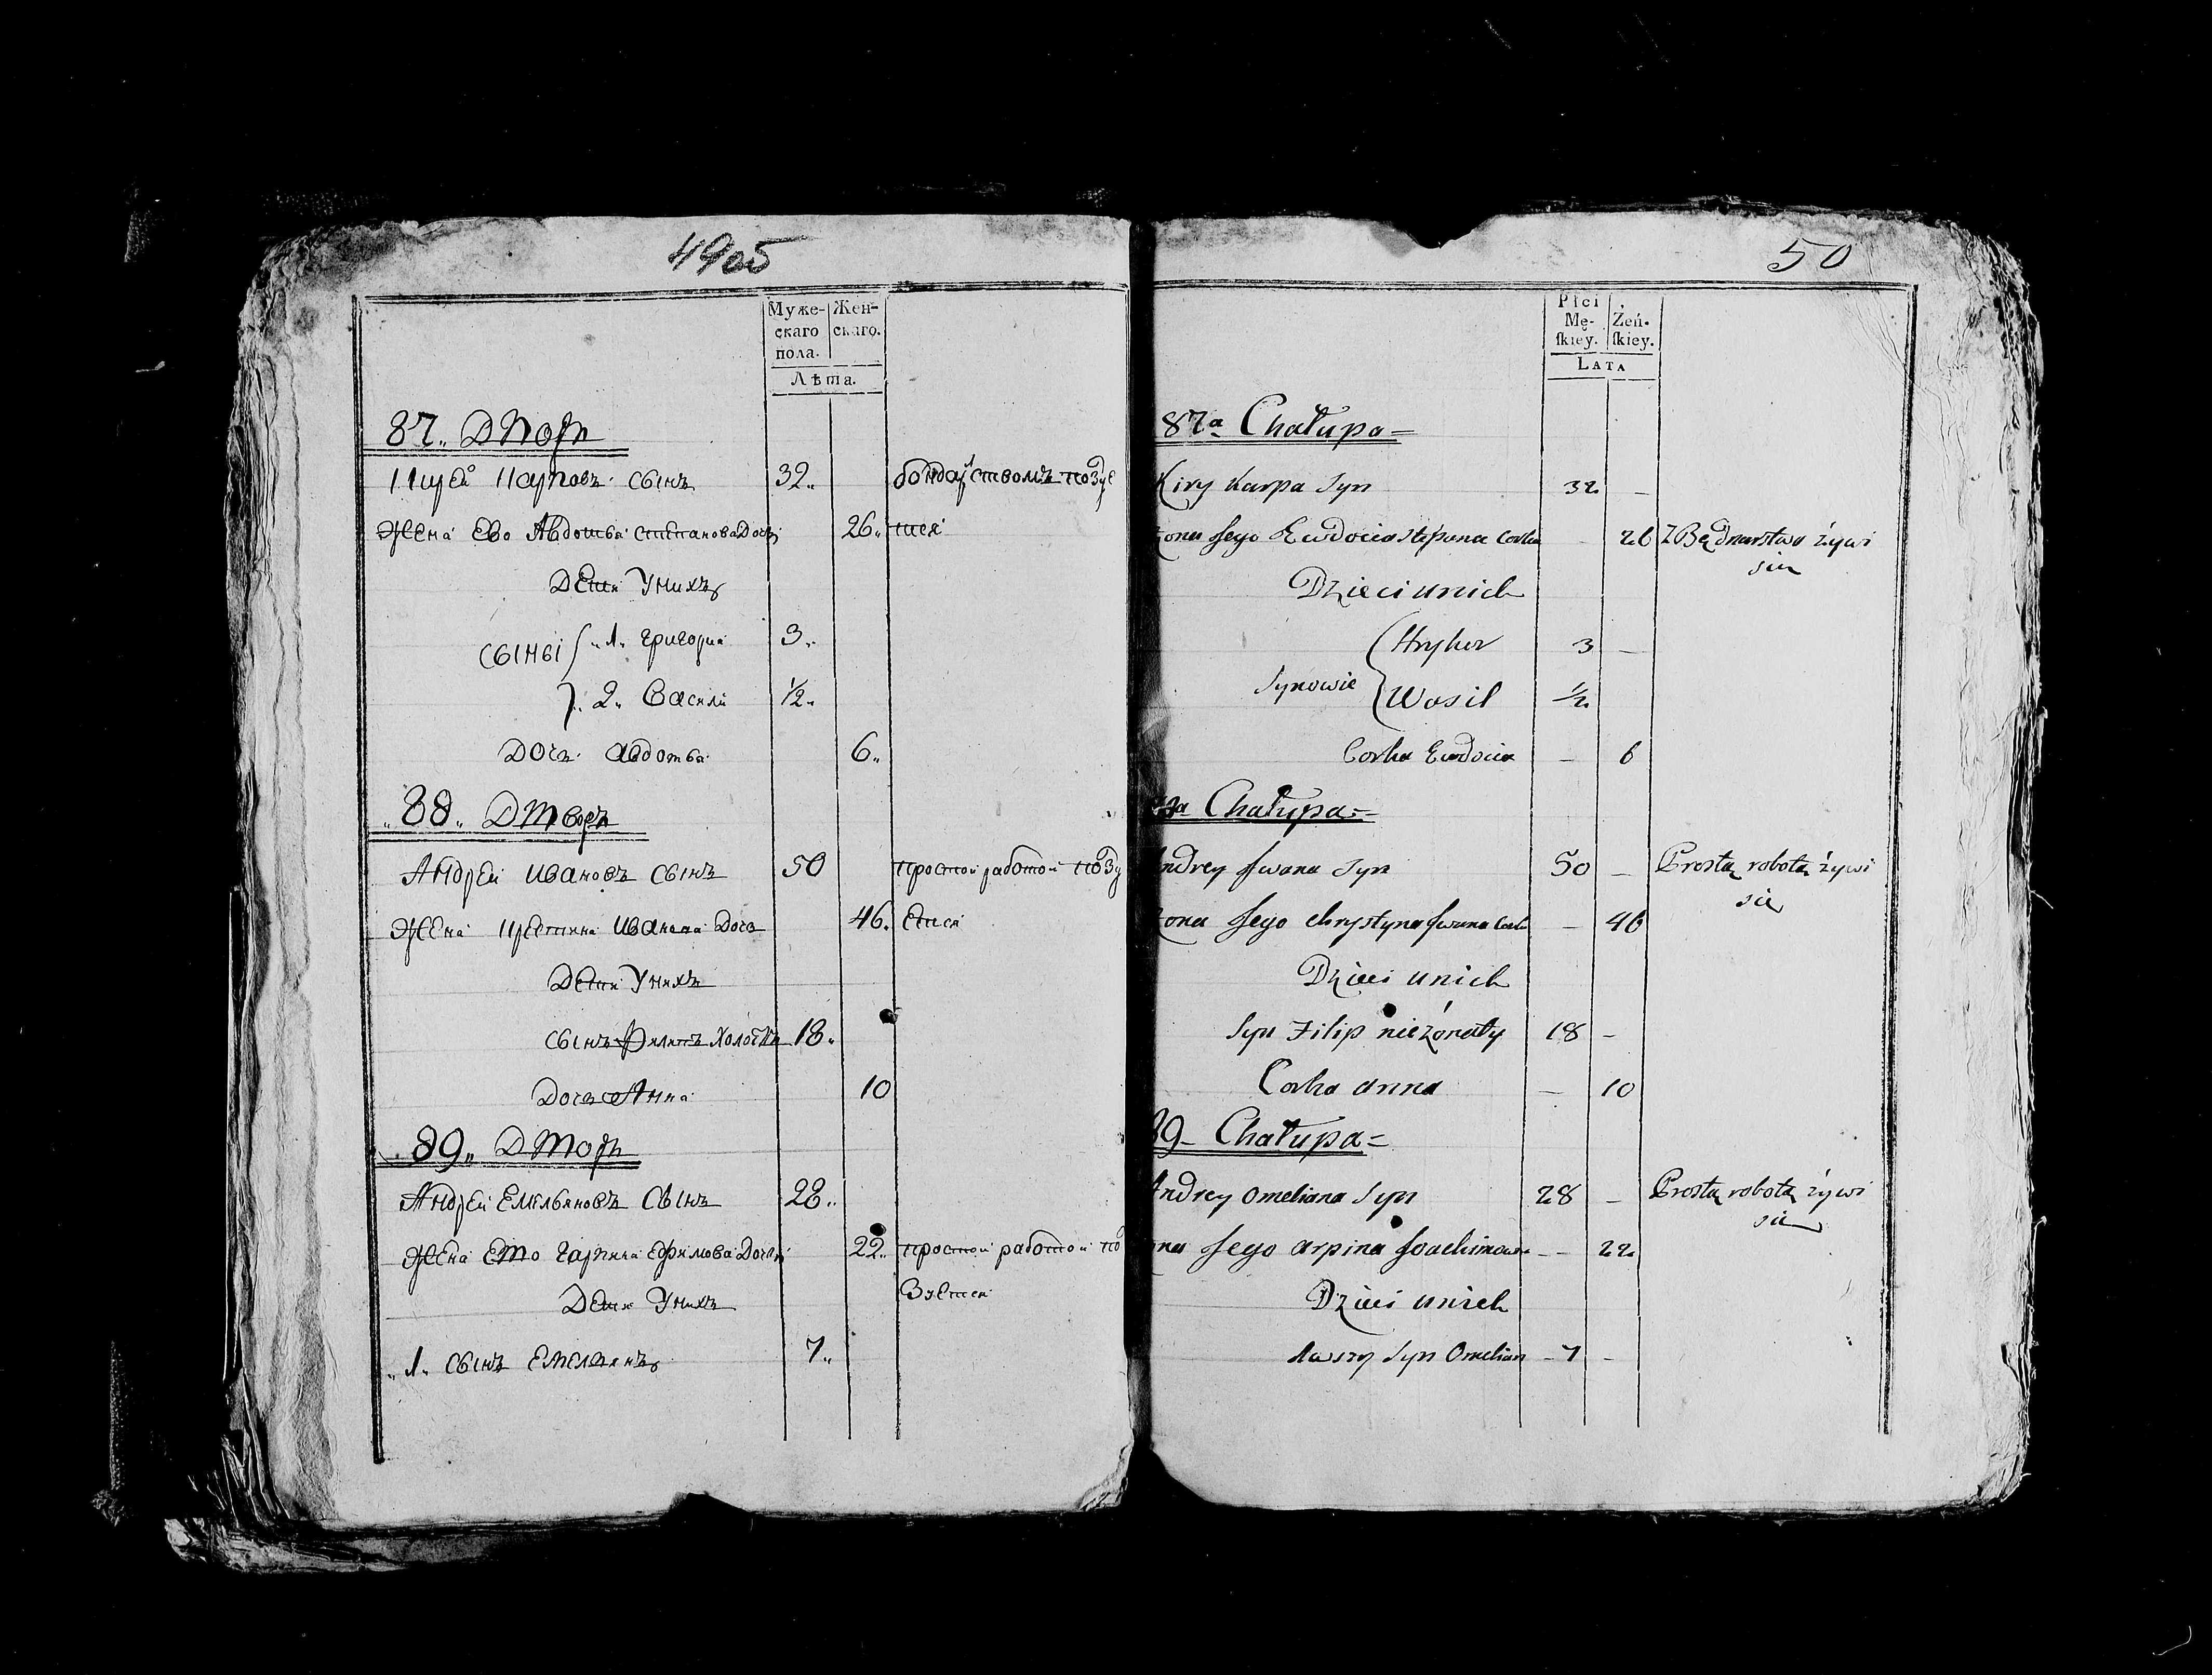 49об
Муже-
скаго
пола.
Жен-
скаго.
Лѣта.
87. Дворъ
Кирей Карповъ сынъ 32. бондарствомъ ползуе
Жена Ево Авдотья степанова Дочь 26. тся
Дети Унихъ
Сыны 1. григорий 3.
2. Василий 1/2.
Дочь авдотья 6.
88. Дворъ
Андрей Ивановъ Сынъ 50 простой работой ползу
Жена Крестина Иванова Дочь 46. ется
Дети Унихъ
сынъ Филипъ Холостъ 18.
Дочь Анна 10
89. Дворъ
Андрей Емельяновъ Сынъ 28.
Жена Ево Гарпина Ефимова Дочь 22. простой работой по
Зуется
Дети Унихъ
1. сынъ Емельянъ 7.
50
Płci
Mę-
ſkiey.
Żeń-
ſkiey.
LATA
87a Chałupa
Kiry Karpa Syn 32 –
żona Jego Ewdocia Stepana Corka – 26 Z Bednarstwa żywi
sie
Dzieci unich
Synowie
Hryhor 3 –
Wasil 1/2
Corka Ewdocia – 6
88a Chałupa
Andrey Jwana Syn 50 – Prostą robotą żywi
się
żona Jego Chrystyna Jwana Corka – 46
Dzieci unich
Syn Filip nieżonaty 18 –
Corka anna – 10
89 Chałupa
Andrey Omeliana Syn 28 – Prostą robotą żywi
sie
żona Jego arpina Joachimowa – 22
Dzieci unich
Syn Omelian 7 –